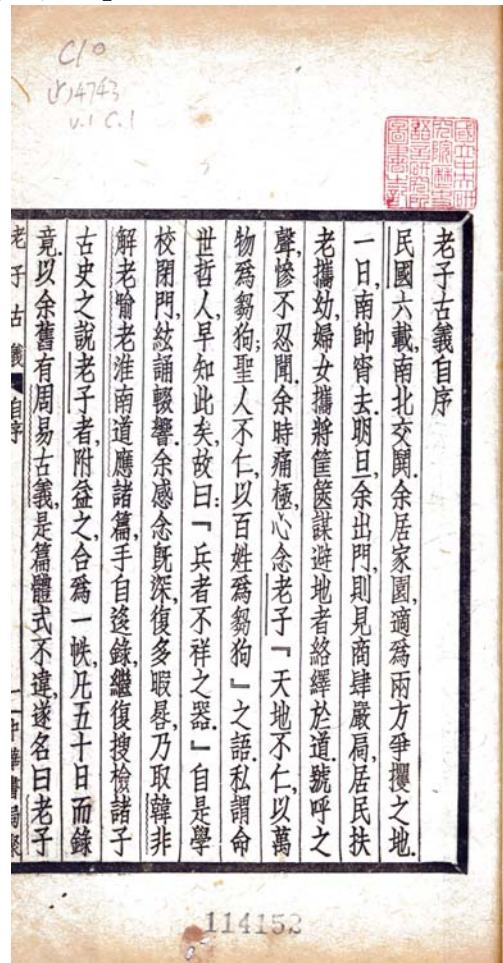 C10
4743
v.1 C.1
國立中央研
究院歷史
語言研究所
圖書之記
老子古義自序
民國六載，南北交鬨．余居家園，適爲兩方爭攫之地．
一日，南帥宵去．明旦，余出門，則見商肆嚴扃，居民扶
老攜幼，婦女攜將筐篋謀避地者絡繹於道．號呼之
聲，慘不忍聞．余時痛極，心念老子『天地不仁，以萬
物爲芻狗；聖人不仁，以百姓爲芻狗』之語．私謂命
世哲人，早知此矣，故曰：『兵者不祥之器．』自是學
校閉門，絃誦輟響．余感念既深，復多暇晷，乃取韓非
解老喻老淮南道應諸篇，手自迻錄，繼復搜檢諸子
古史之說老子者，附益之，合爲一帙，凡五十日而錄
竟．以余舊有周易古義，是篇體式不違，遂名曰老子
老子古義 自序 一 中華書局聚
114152